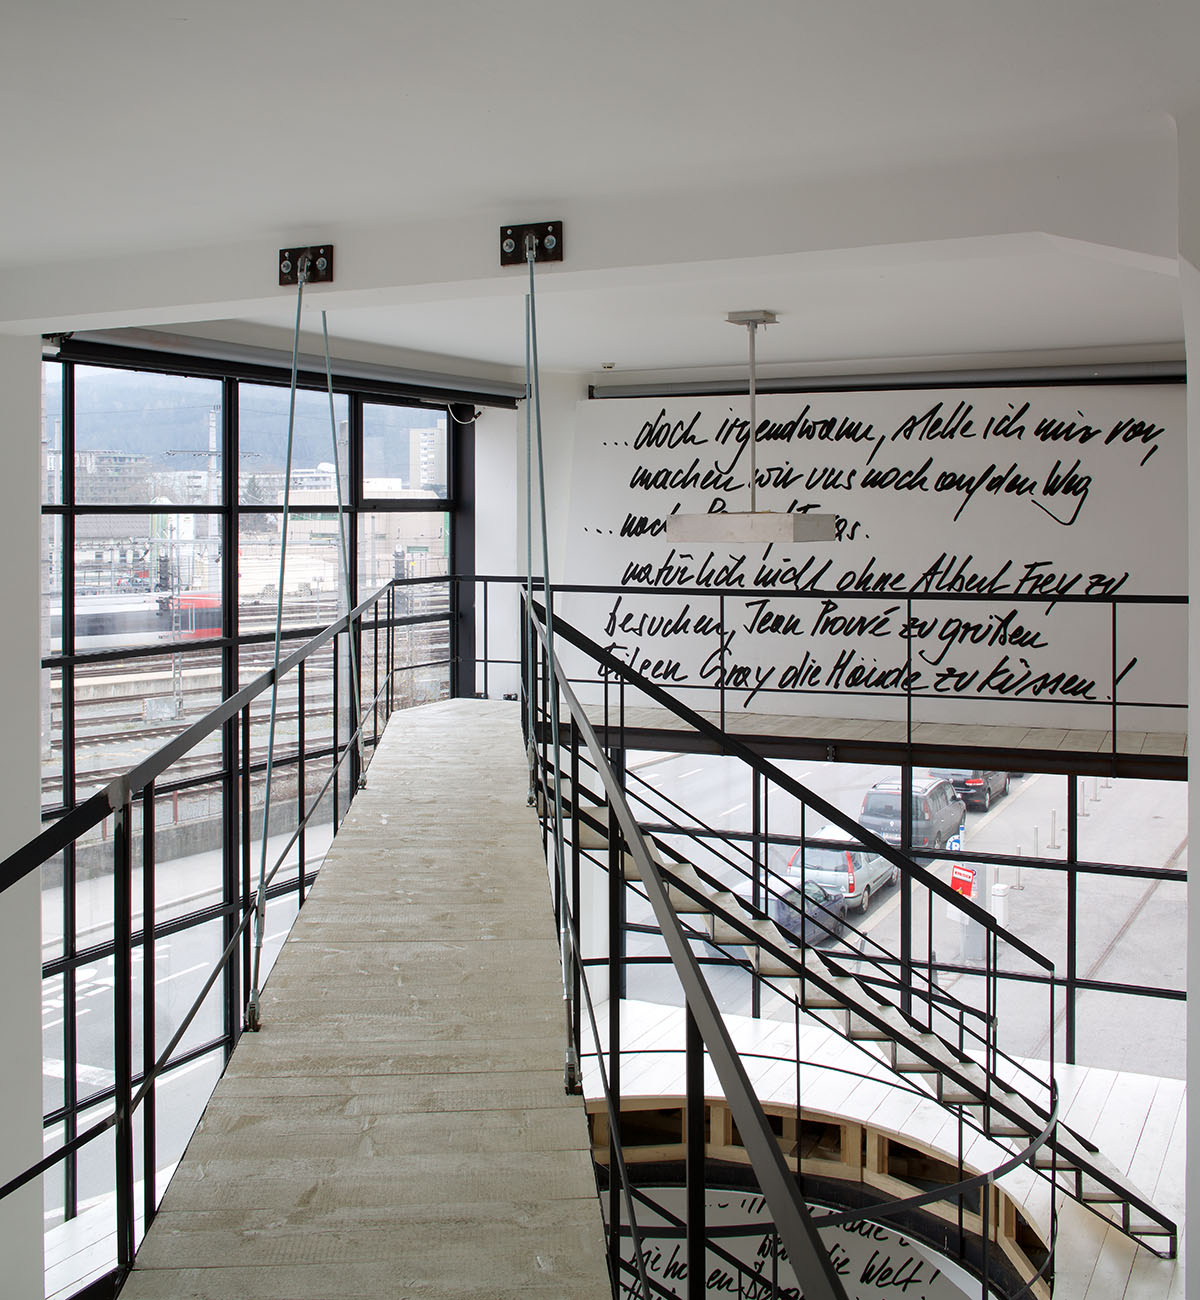 ... doch irgendwann, stelle ich mir vor,
machen wir uns noch auf den Weg
... nach
natürlich nicht ohne Albert Frey zu
besuchen, Jean Prouvé zu grüßen
Eileen Gray die Hände zu küssen!
die Welt!